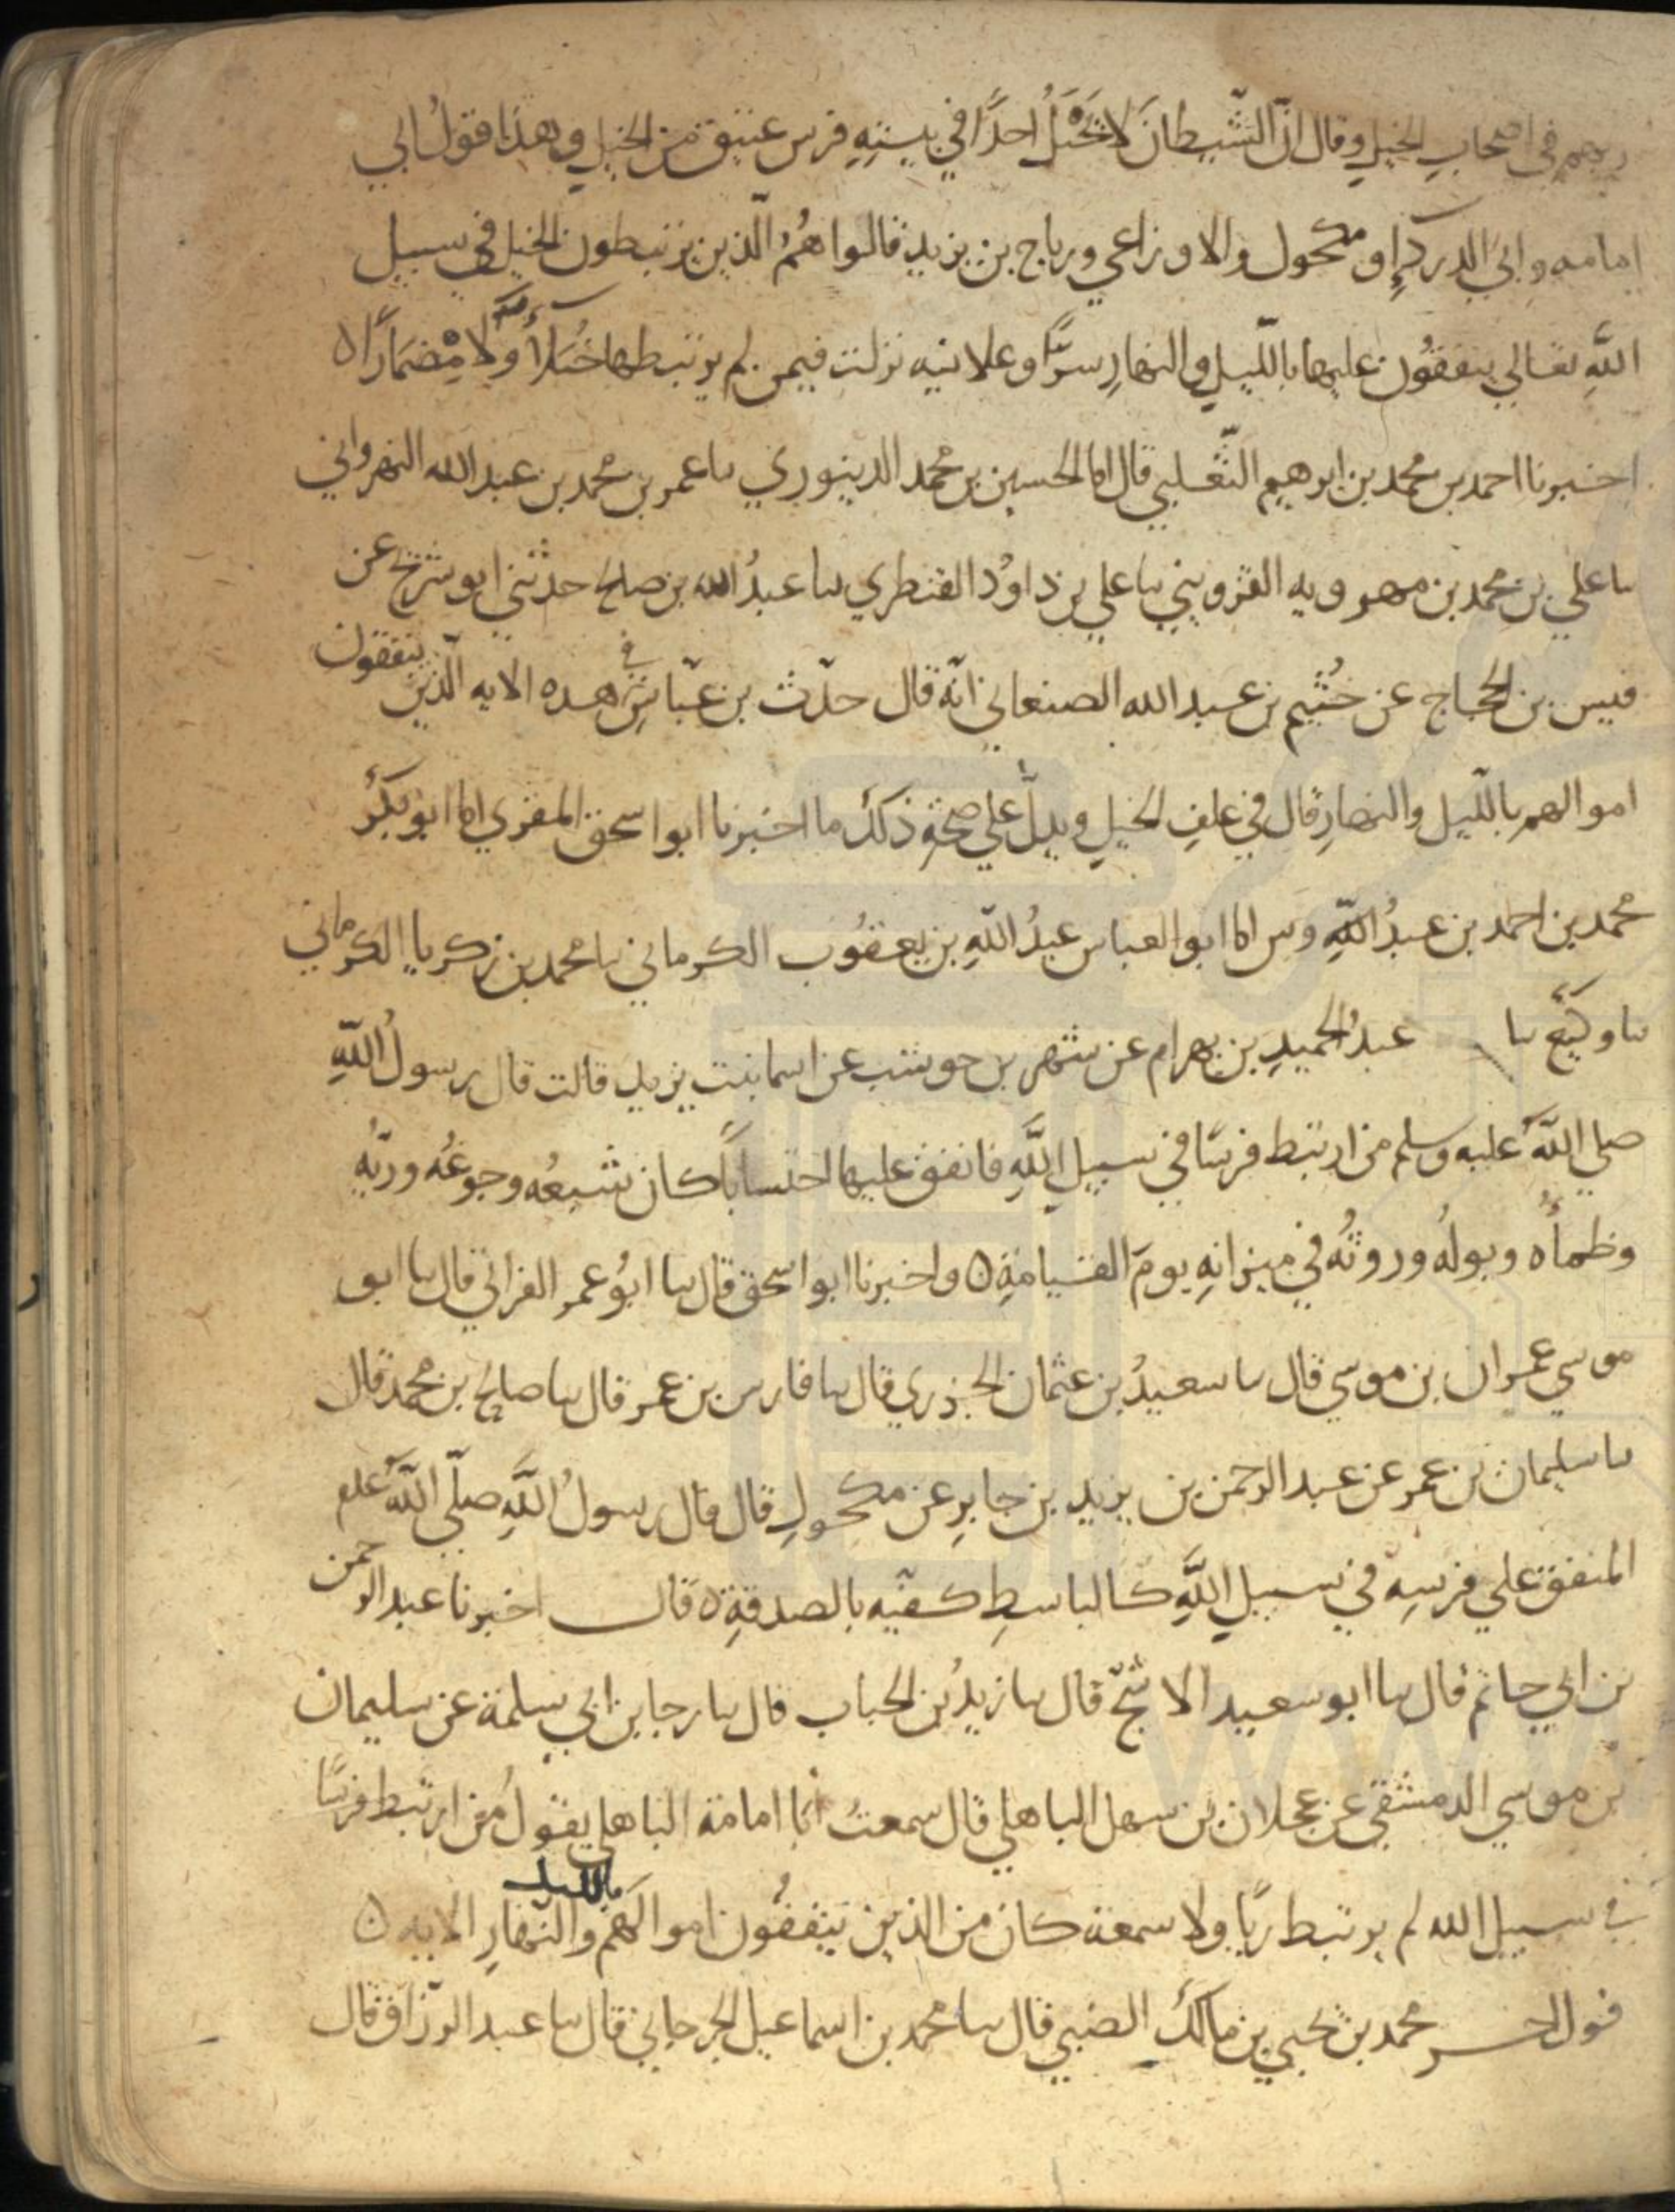 ربهم في اصحاب الخيل وقال ان الشّيطانَ لا يَخْبَلُ احدًا في بيتِهِ فرس عتيق من الخيل وهذا قولُ ابي
امامه وابي الدرداءِ ومكحول والاوزاعي ورباح بن يزيد قالوا هُمُ الّذين يرتبطون الخيل في سبيل
اللهِ تعالي ينفقُون عليها باللّيلِ والنهارِ سرًّا وعلانيه نزلت فيمن لم يرتبطها خُيَلاءً ولا مِضمَارًا ه
اخبرنا احمد بن محمد بن ابرهيم الثّعلبي قال انا الحسين بن محمد الدينوري نا عمر بن محمد بن عبد الله النهرواني
نا علي بن محمد بن مهرويه القزويني نا علي بن داوُد القنطري نا عبدُ الله بن صلح حدّثني ابو شريح عن
قيس بن الحجاج عن خُثيم بن عبد الله الصنعاني انّه قال حدّث بن عبّاسٍ في هذه الايه الّذين ينفقون
اموالهم باللّيل والنهارِ قال في علفِ الخيلِ ويدلّ علي صحّةِ ذلك ما اخبرنا ابو اسحق المقري انا ابو بكر
محمد بن احمد بن عبدُ اللّهِ وس انا ابو العباس عبدُ اللّهِ بن يعقُوب الكرماني نا محمد بن زكريا الكرماني
نا وكيع نا عبدُ الحميدِ بن بهرام عن شهر بن حوشب عن اسما بنت يزيد قالت قال رسولُ اللّهِ
صلي اللهُ عليه وسلم من ارتبط فرسًا في سبيل اللهِ فانفق عليها احتسابًا كان شبعُه وجوعُه وريُّه
وظمأُه وبولُه وروثُه في ميزانِهِ يومَ القيامةِ ه واخبرنا ابو اسحق قال نا ابُو عمر الفراتي قال نا ابو
موسي عمران بن موسي قال نا سعيدُ بن عثمان الجزري قال نا فارس بن عمر قال نا صالح بن محمد قال
نا سليمان بن عمر عن عبد الرحمن بن يزيد بن جابرِ عن مكحولِ قال قال رسولُ اللّهِ صلّي اللّهُ علم
المنفق علي فرسِه في سبيل اللّهِ كالباسطِ كفّيه بالصدقةِ ه قال اخبرنا عبد الرحمن
بن ابي حاتم قال نا ابو سعيد الاشجّ قال نا زيدُ بن الحباب قال نا رجا بن ابي سلمة عن سليمان
بن موسي الدمشقي عن عجلان بن سهل الباهلي قال سمعتُ ابا امامة الباهلي يقولُ من ارتبط فرسًا
في سبيل الله لم يرتبط ريًا ولا سمعة كان من الذين ينفقُون اموالَهم بالليل والنّهارِ الايه ه
قول اخر محمد بن يحيي بن مالك الضبي قال نا محمد بن اسماعيل الجرجاني قال نا عبد الرزاق قال